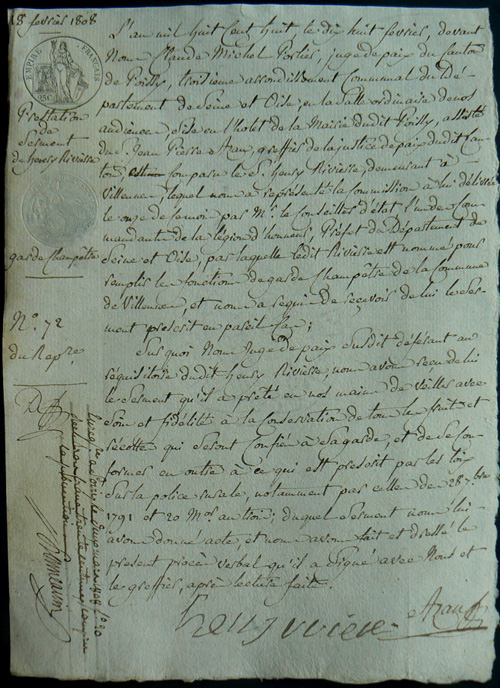 18 fevrier 1808
EMPIRE FRANÇAIS
25C
Prestation
de
Serment
de henry Riviere
garde Champêtre
N°. 72
du Repre.
L'an mil huit Cent huit le dix huit fevrier, devant
Nous Claude Michel Portier juge de paix du Canton
de Poissy, troisieme arrondissement Communal du Dé-
partement de Seine et Oise, en la Salle ordinaire de nos
audiences, Sise en l'hotel de la Mairie dudit Poissy, assisté
du S. Jean Pierre Azan, greffier de la justice de paix dudit Can-
ton, Comparu le Sr. henry Riviere, demeurant à
Villennes, lequel nous a représenté la Commission à lui délivrée
le onze de Ce mois par Mr. le Conseiller d'état l'un des Com-
mandants de la légion d'honneur, Préfet du Département de
Seine et Oise, par laquelle ledit Riviere est nommé pour
remplir les fonctions de garde Champêtre de la Commune
de Villennes, et nous a requis de recevoir de lui le Ser-
ment prescrit en pareil Cas;
Sur quoi Nous Juge de paix Susdit déférant au
réquisitoire dudit henry Riviere, nous avons reçu de lui
le Serment qu'il a prêté en nos mains de veiller avec
Soin et fidélité à la Conservation de tous les fruits et
récoltes qui Seront Confiés à Sa garde, et de Se Con-
former en outre à Ce qui est prescrit par les loix
Sur la police rurale, notamment par celles des 28 7.bre
1791 et 20 Mes.or an trois; duquel Serment nous lui
avons donné acte, et nous avons fait et dressé le
present procès verbal qu'il a Signé avec Nous et
le greffier, après lecture faite.
henry riviere
Azan